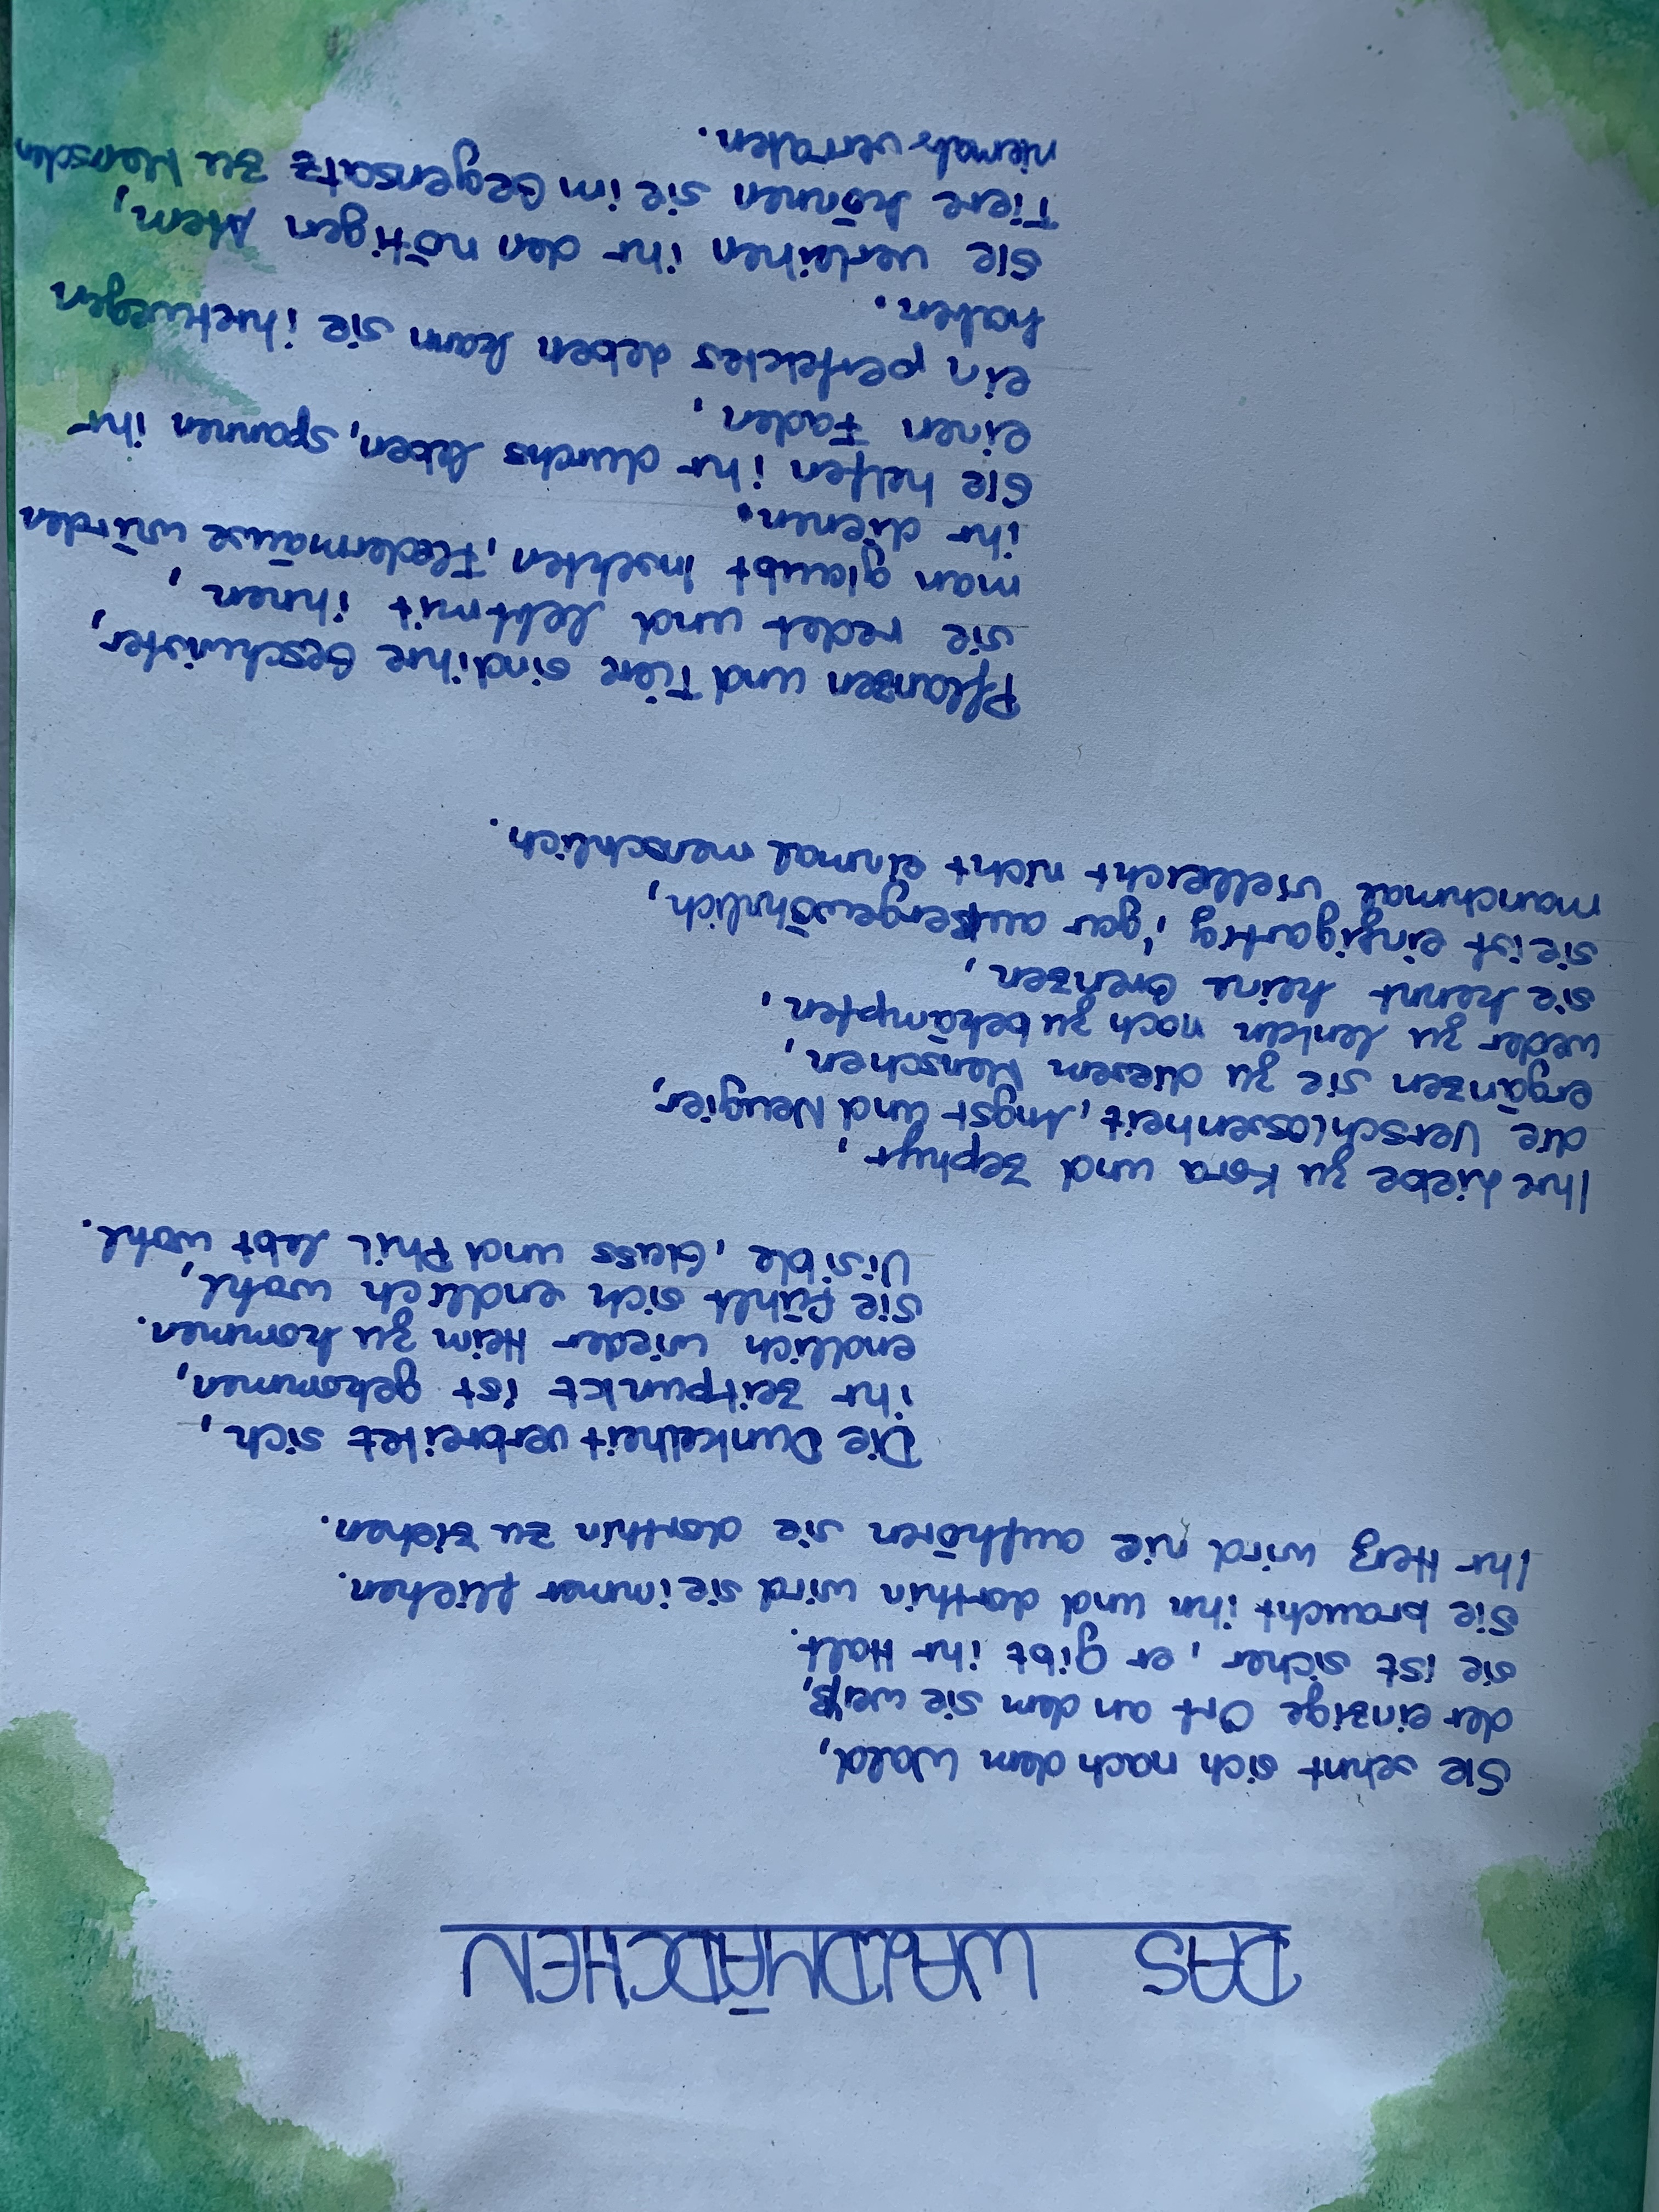 DAS WALDMÄDCHEN
Sie sehnt sich nach dem Wald,
der einzige Ort an dem sie weiß,
sie ist sicher, er gibt ihr Halt.
Sie braucht ihn und dorthin wird sie immer fliehen.
Ihr Herz wird nie aufhören sie dorthin zu ziehen.
Die Dunkelheit verbreitet sich,
ihr Zeitpunkt ist gekommen,
endlich wieder Heim zu kommen.
Sie fühlt sich endlich wohl,
Visible, Glass und Phil lebt wohl.
Ihre Liebe zu Fora und Zephyr,
die Verschlossenheit, Angst und Neugier,
ergänzen sie zu diesem Menschen,
weder zu lenken noch zu bekämpfen,
sie kennt keine Grenzen,
sie ist einzigartig, gar außergewöhnlich,
manchmal vielleicht nicht einmal menschlich.
Pflanzen und Tiere sind ihre Geschwister,
sie redet und lebt mit ihnen,
man glaubt Insekten, Fledermäuse würden
ihr dienen.
Sie helfen ihr durchs Leben, spannen ihr
einen Faden,
ein perfektes Leben kann sie ihretwegen
haben.
Sie verleihen ihr den nötigen Atem,
Tiere können sie im Gegensatz zu Menschen
niemals verraten.